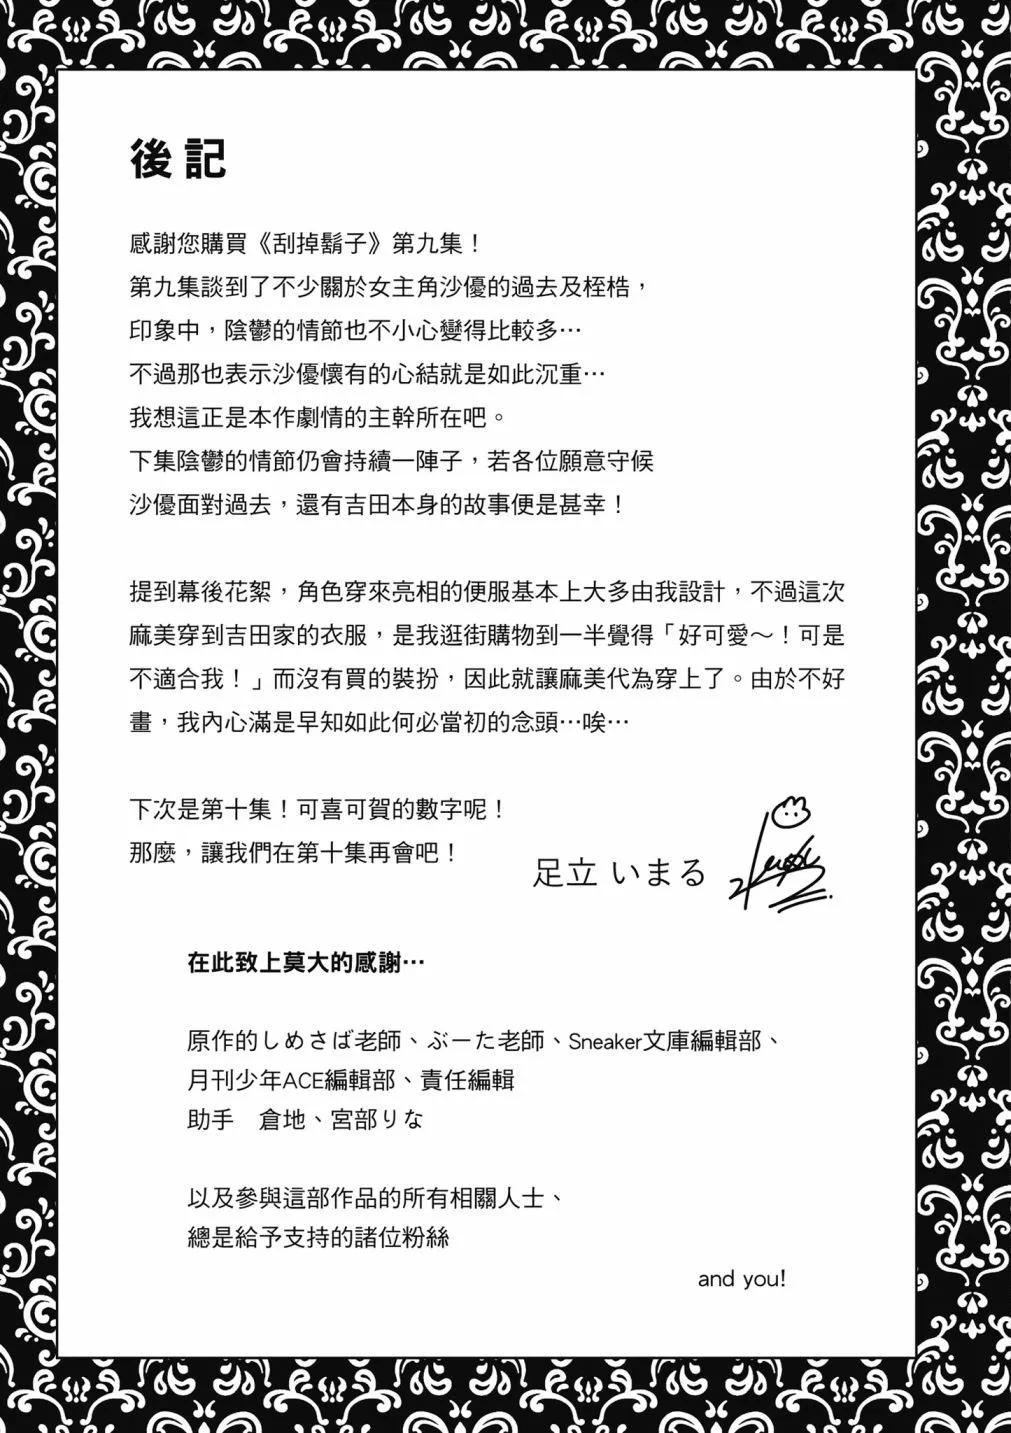 後記
感謝您購買《刮掉鬍子》第九集！
第九集談到了不少關於女主角沙優的過去及桎梏，
印象中，陰鬱的情節也不小心變得比較多…
不過那也表示沙優懷有的心結就是如此沉重…
我想這正是本作劇情的主幹所在吧。
下集陰鬱的情節仍會持續一陣子，若各位願意守候
沙優面對過去，還有吉田本身的故事便是甚幸！
提到幕後花絮，角色穿來亮相的便服基本上大多由我設計，不過這次
麻美穿到吉田家的衣服，是我逛街購物到一半覺得「好可愛～！可是
不適合我！」而沒有買的裝扮，因此就讓麻美代為穿上了。由於不好
畫，我內心滿是早知如此何必當初的念頭…唉…
下次是第十集！可喜可賀的數字呢！
那麼，讓我們在第十集再會吧！
足立 いまる
在此致上莫大的感謝…
原作的しめさば老師、ぶーた老師、Sneaker文庫編輯部、
月刊少年ACE編輯部、責任編輯
助手　倉地、宮部りな
以及參與這部作品的所有相關人士、
總是給予支持的諸位粉絲
and you!